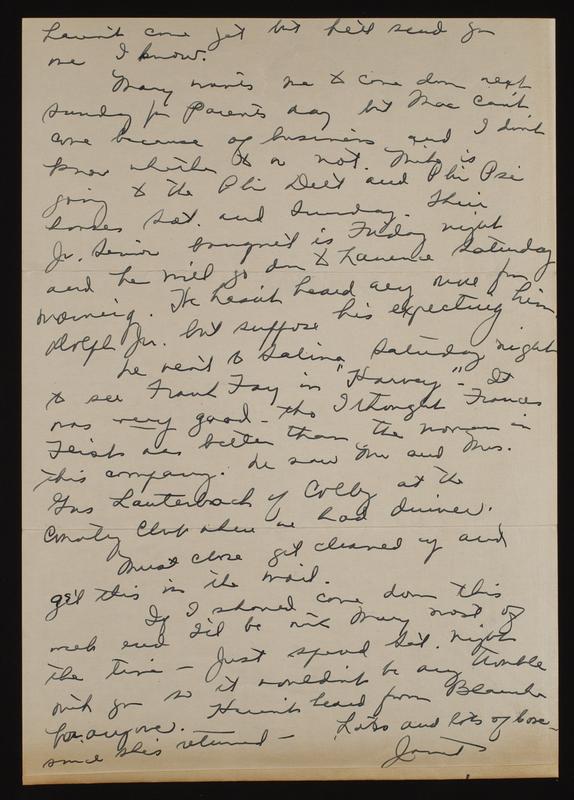 haven't come yet but he'll send you
one I know.
Mary wants me to come down next
Sunday for Parents day but Mac can't
come because of business and I don't
know whether to or not. Mike is
going to the Phi Delt and Phi Psi
houses Sat. and Sunday. Their
Jr. Senior banquet is Friday night
and he will go down to Lawrence Saturday
morning. He hasn't heard any more from
Dolph Jr. but suppose his expecting him.
We went to Salina Saturday night
to see Frank Fay in "Harvey" - It
was very good - tho I thought Frances
Feist was better than the woman in
this company. We saw Mr and Mrs.
Gus Lauterbach of Colby at the
Country Club where we had dinner.
Must close get cleaned up and
get this in the mail.
If I should come down this
week end I'd be with Mary most of
the time - Just spend Sat. night
with you so it wouldn't be any trouble
for anyone. Haven't heard from Blanche
since she's returned - Lots and lots of love -
Janet